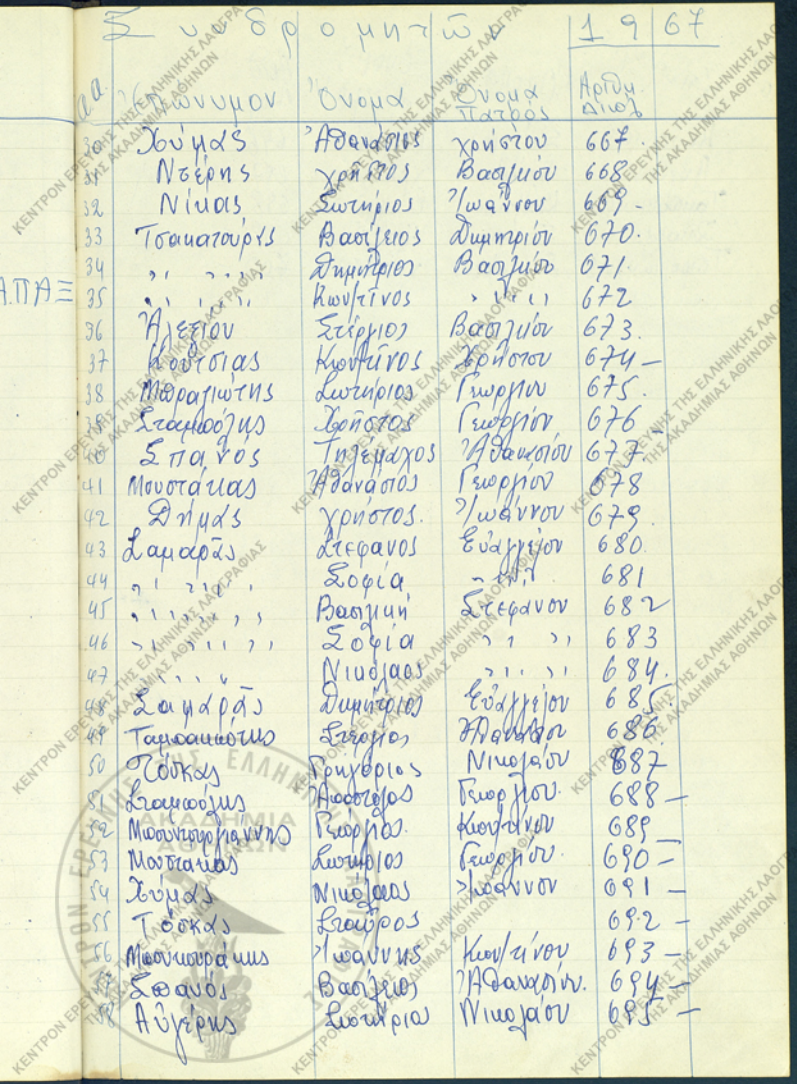 Συνδρομητῶν 1967
α.α. Ἐπώνυμον Ὄνομα Ὄνομα Πατρός Ἀριθμ. Δικολ
30 Χύμας Ἀθανάσιος Χρήστου 667
31 Ντέρης Χρῆστος Βασιλείου 668
32 Νίκας Σωτήριος Ἰωάννου 669 -
33 Τσακατούρας Βασίλειος Δημητρίου 670.
34 ,, ,, ,, Δημήτριος Βασιλείου 671
ΑΠΑΞ
35 ,, ,, ,, Κων/τῖνος ,, ,, ,, 672
36 Ἀλεξίου Στέργιος Βασιλείου 673.
37 Κούτσιας Κων/τῖνος Χρήστου 674 -
38 Μπραγιώτης Σωτήριος Γεωργίου 675.
39 Σταμούλης Χρῆστος Γεωργίου 676
40 Σπανός Τηλέμαχος Ἀθανασίου 677
41 Μουστάκας Ἀθανάσιος Γεωργίου 678
42 Δήμας Χρῆστος. Ἰωάννου 679.
43 Σαμαρᾶς Στέφανος Εὐαγγέλου 680.
44 ,, ,, ,, Σοφία ,, ,, 681
45 ,, ,, ,, Βασιλική Στεφάνου 682
46 ,, ,, ,, Σοφία ,, ,, ,, 683
47 ,, ,, Νικόλαος ,, ,, ,, 684.
48 Σαμαρᾶς Δημήτριος Εὐαγγέλου 685.
49 Στέργιος 686
50 Τόσκας Γρηγόριος Νικολάου 687
51 Σταμούλης Ἀπόστολος Γεωργίου. 688 -
52 Γεώργιος. Κων/τίνου 689
53 Μουστάκας Σωτήριος Γεωργίου. 690 -
54 Χύμας Νικόλαος Ἰωάννου 691 -
55 Τόσκας Σταῦρος 692 -
56 Ἰωάννης Κων/τίνου 693 -
57 Σπανός Βασίλειος Ἀθανασίου. 694 -
58 Αὐγέρης Σωτήριος Νικολάου 695 -
ΚΕΝΤΡΟΝ ΕΡΕΥΝΗΣ ΤΗΣ ΕΛΛΗΝΙΚΗΣ ΛΑΟΓΡΑΦΙΑΣ
ΤΗΣ ΑΚΑΔΗΜΙΑΣ ΑΘΗΝΩΝ
ΑΚΑΔΗΜΙΑ
ΑΘΗΝΩΝ